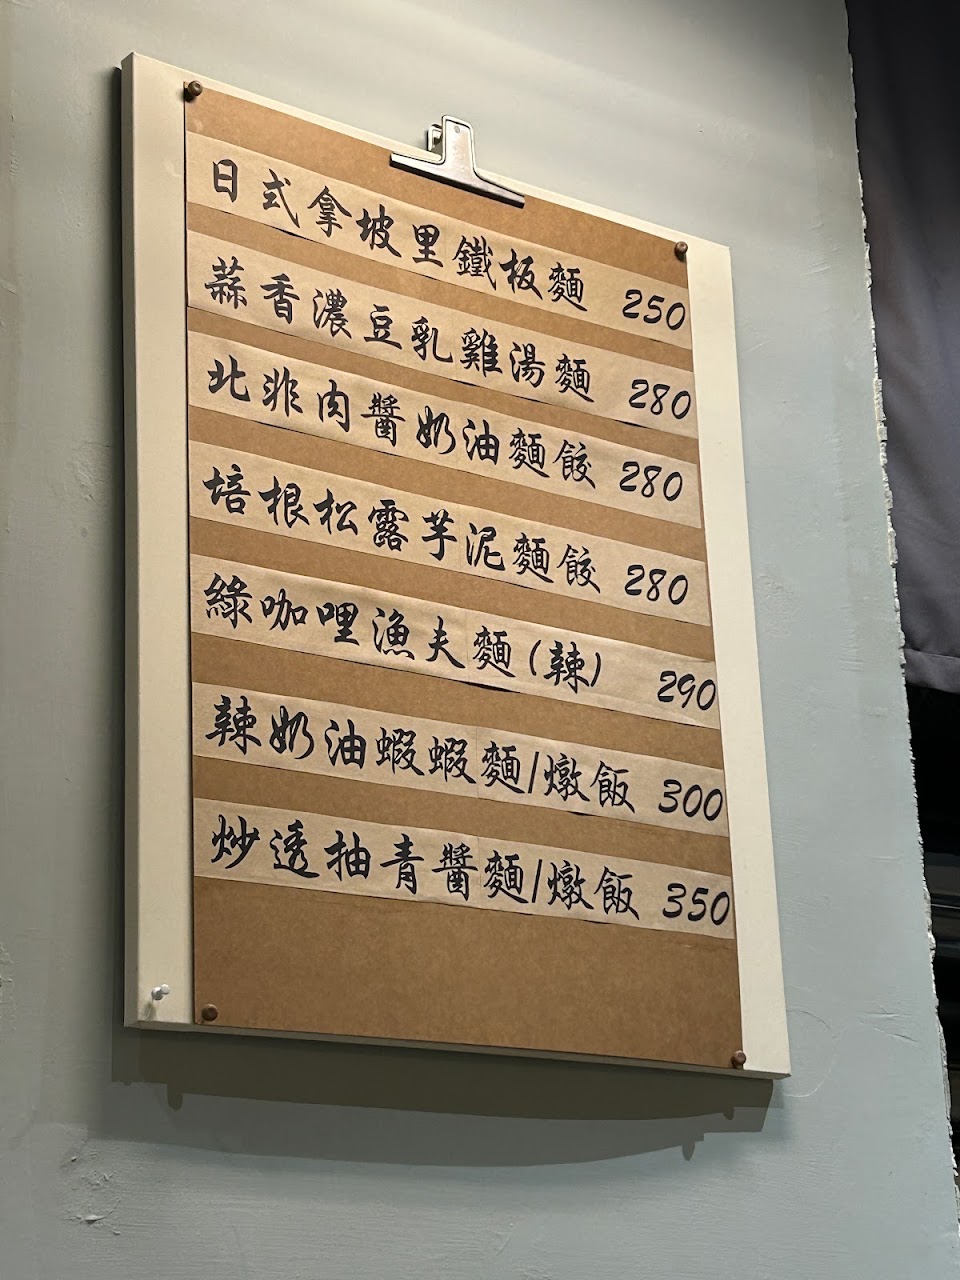 日式拿坡里鐵板麵 250
蒜香濃豆乳雞湯麵 280
北非肉醬奶油麵餃 280
培根松露芋泥麵餃 280
綠咖哩漁夫麵(辣) 290
辣奶油蝦蝦麵/燉飯 300
炒透抽青醬麵/燉飯 350